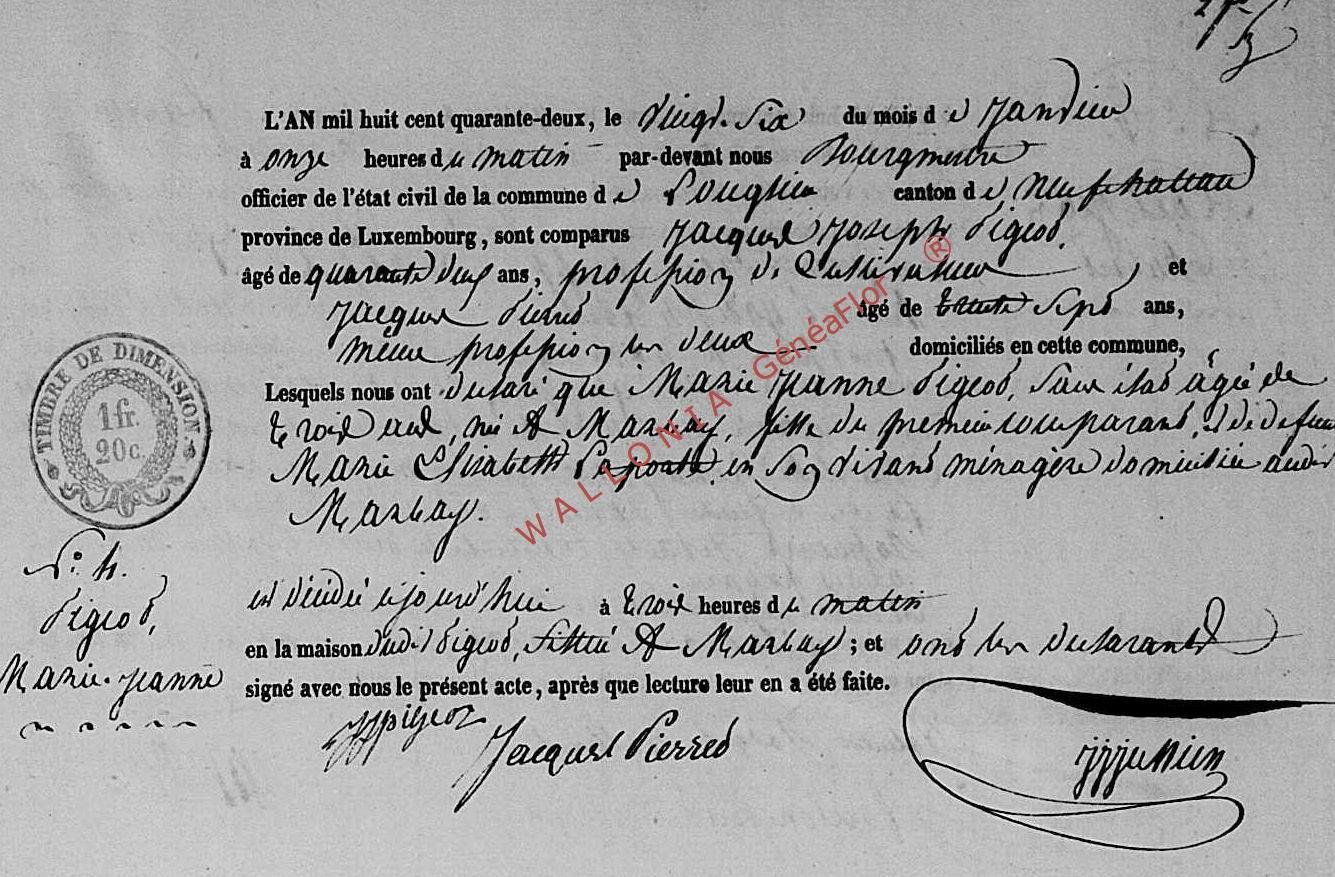 L'AN mil huit cent quarante-deux, le vingt-six du mois de Janvier
à onze heures du matin par-devant nous Bourgmestre
officier de l'état civil de la commune de canton de Neufchateau
province de Luxembourg, sont comparus Jacques Joseph Pigeod,
âgé de quarante deux ans, profession de Cultivateur, et
Jacques Pierred âgé de trente sept ans,
même profession les deux domiciliés en cette commune,
Lesquels nous ont déclaré que Marie Jeanne Pigeod, sans état âgée de
trois ans, née à Marbay, fille du premier comparant, & de defunte
Marie Elisabeth Laporte, en son vivant ménagère domiciliée audit
Marbay.
TIMBRE DE DIMENSION
1 fr.
20 c.
N°. 4.
Pigeod,
Marie-Jeanne
est décédé aujourd'hui à trois heures du matin
en la maison dudit Pigeod, située à Marbay; et ont les déclarants
signé avec nous le présent acte, après que lecture leur en a été faite.
JJ pigeod
Jacques Pierred
WALLONIA GénéaFlor ®